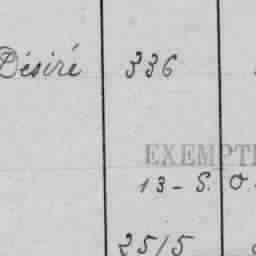 Désiré 336
EXEMPT
13 - S. O.
2515